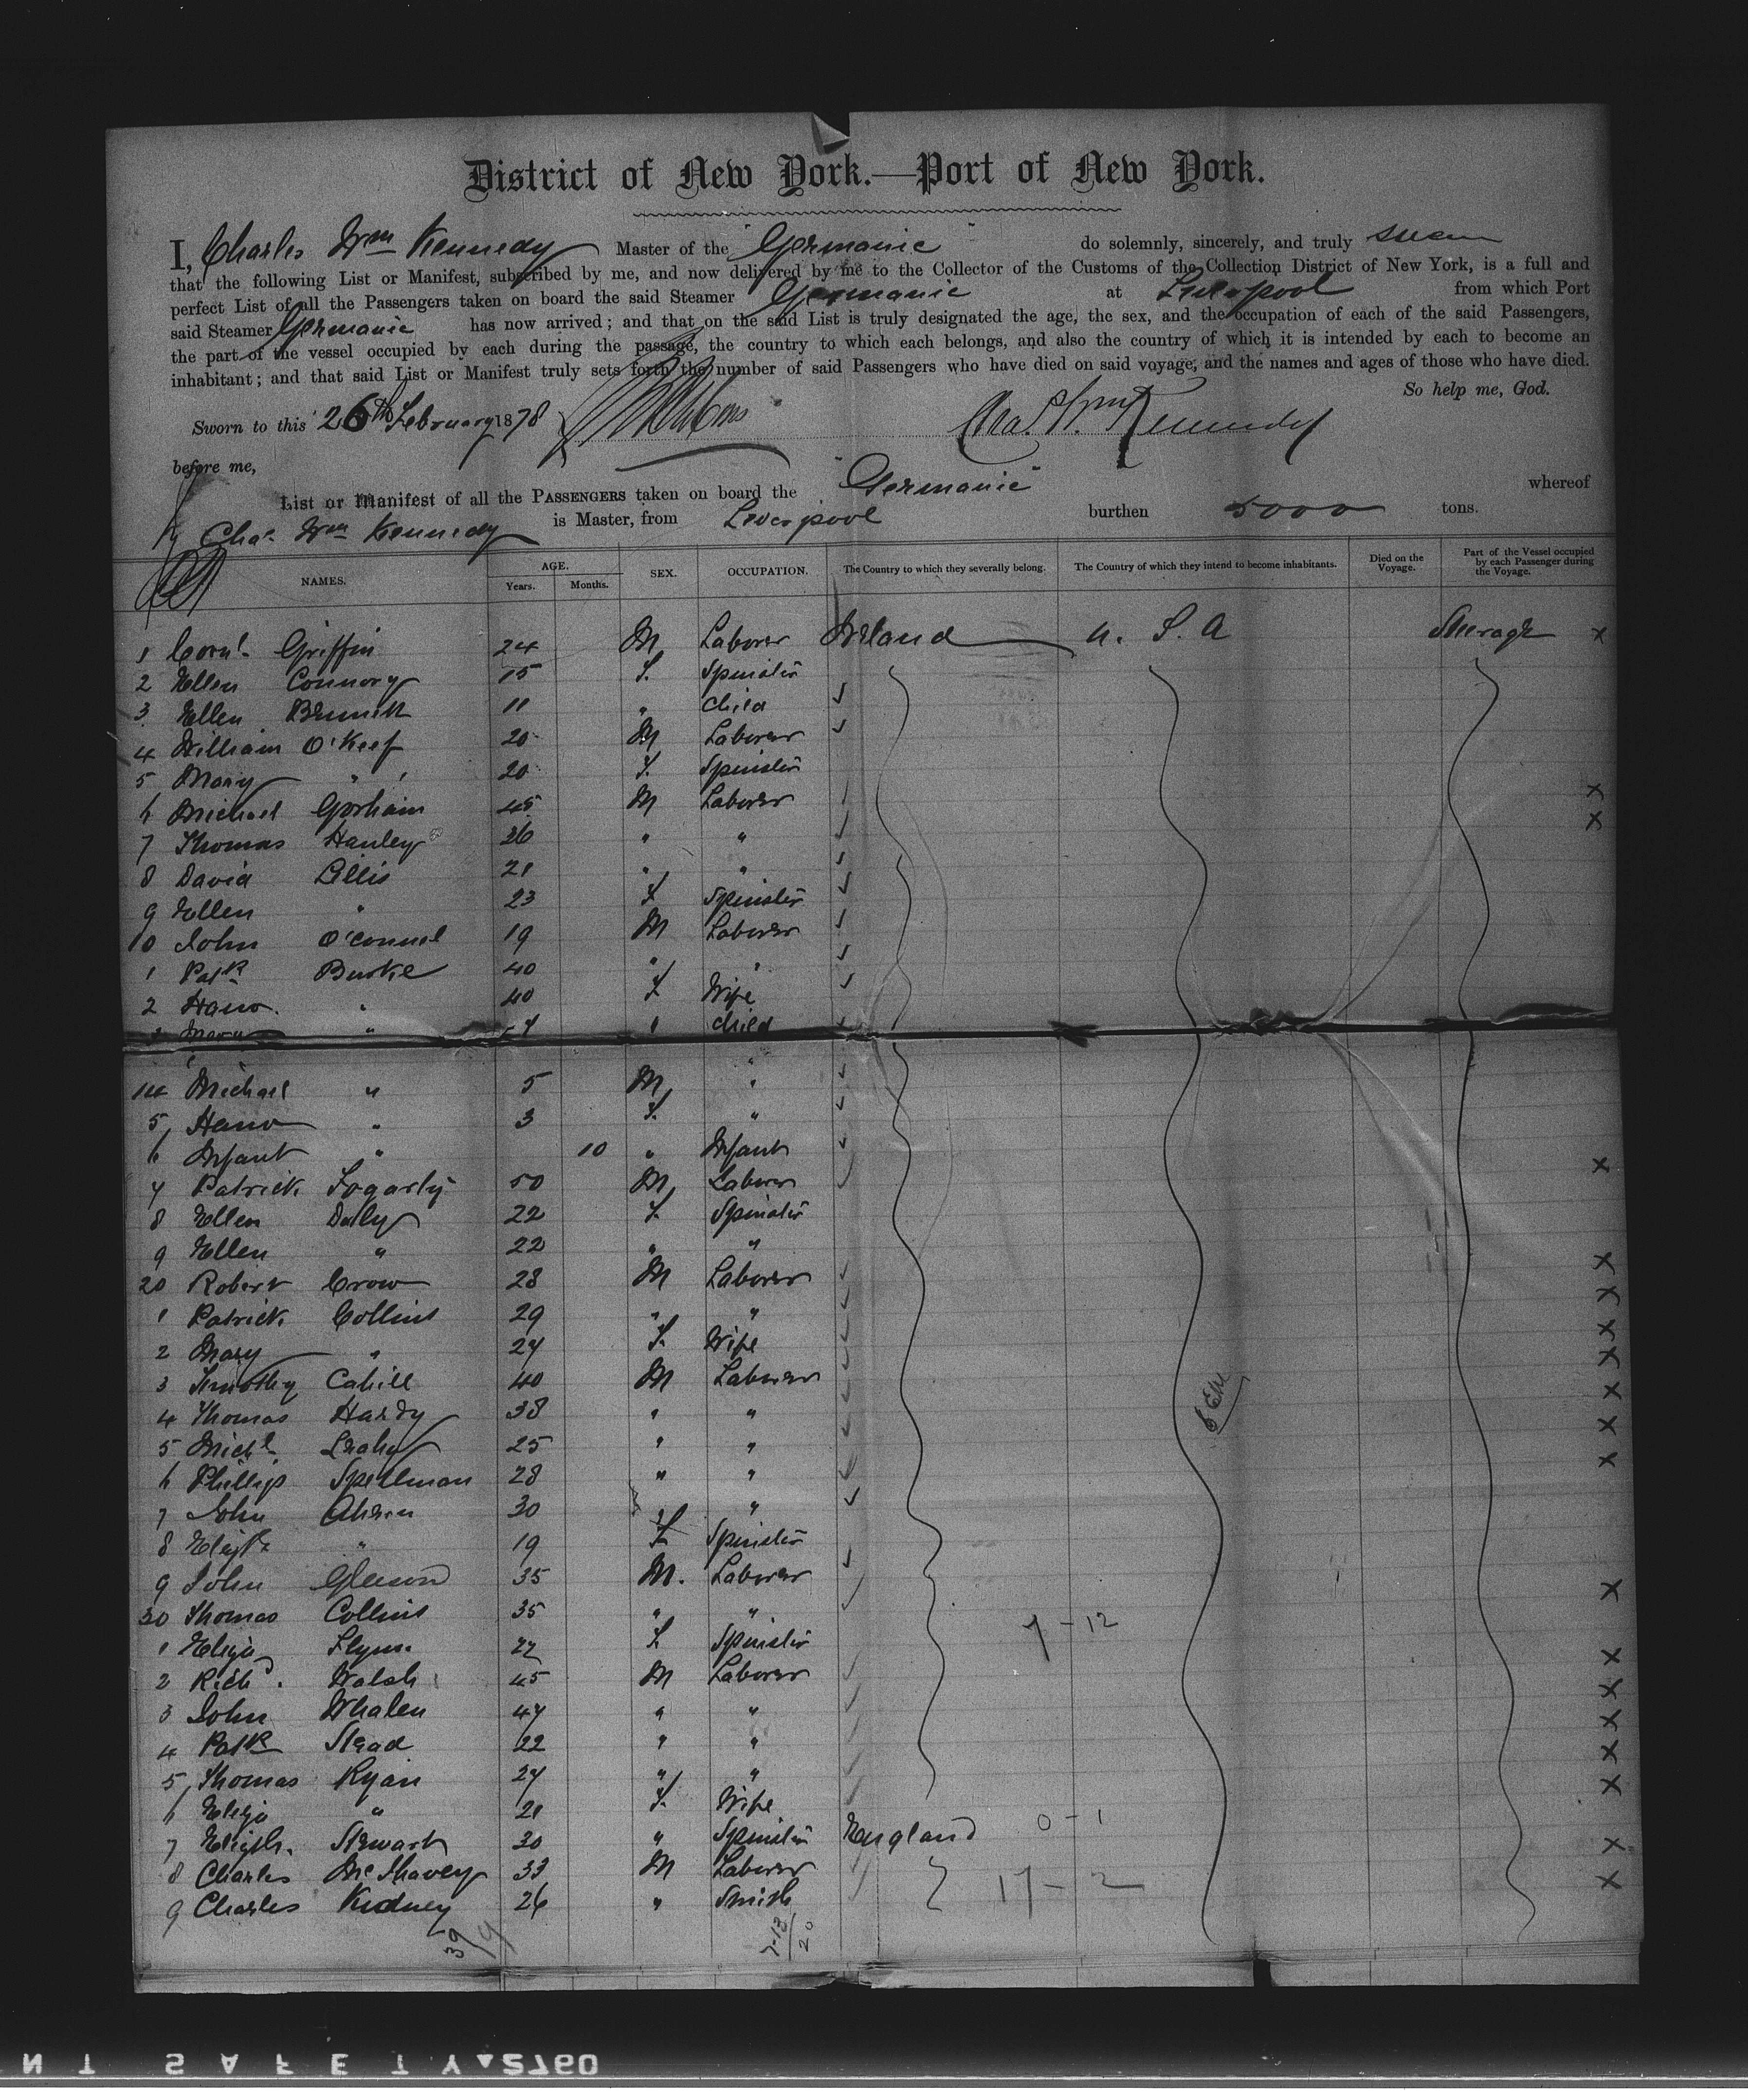 District of New York.—Port of New York.
I, Charles Wm Kennedy Master of the "Germanic" do solemnly, sincerely, and truly swear
that the following List or Manifest, subscribed by me, and now delivered by me to the Collector of the Customs of the Collection District of New York, is a full and
perfect List of all the Passengers taken on board the said Steamer Germanic at Liverpool from which Port
said Steamer Germanic has now arrived; and that on the said List is truly designated the age, the sex, and the occupation of each of the said Passengers,
the part of the vessel occupied by each during the passage, the country to which each belongs, and also the country of which it is intended by each to become an
inhabitant; and that said List or Manifest truly sets forth the number of said Passengers who have died on said voyage, and the names and ages of those who have died.
So help me, God.
Sworn to this 26th February 1878 Chas. Wm Kennedy
before me,
List or Manifest of all the PASSENGERS taken on board the "Germanic" whereof
Chas Wm Kennedy is Master, from Liverpool burthen 5000 tons.
NAMES. AGE. Years. Months. SEX. OCCUPATION. The Country to which they severally belong. The Country of which they intend to become inhabitants. Died on the Voyage. Part of the Vessel occupied by each Passenger during the Voyage.
1 Cornl. Griffin 24 M Laborer Ireland U. S. A Steerage x
2 Ellen Connory 15 F. Spinster
3 Ellen 11 " child ✓
4 William O'Keef 20 M Laborer ✓
5 Mary " 20 F. Spinster
6 Michael Gorham 45 M Laborer ✓ x
7 Thomas Hanley 36 " " ✓ x
8 David Lillis 21 " " ✓
9 Ellen " 23 F Spinster ✓
10 John O'Connel 19 M Laborer ✓
1 Patk Burke 40 " " ✓
2 Hano. " 40 F Wife ✓
3 Mary " " child
14 Michael " 5 M, " ✓
5 Hano " 3 F. " ✓
6 Infant " 10 " Infant ✓
7 Patrick Fogarty 50 M, Laborer ✓ x
8 Ellen Daly 22 F. Spinster
9 Ellen " 22 " "
20 Robert Crow 28 M Laborer ✓ x
1 Patrick Collins 29 " " ✓ x
2 Mary " 24 F. Wife ✓ x
3 Timothy Cahill 40 M Laborer ✓ x
4 Thomas Hardy 38 " " ✓ x
5 Michl. Leahy 25 " " ✓ x
6 Phillip Spellman 28 " " ✓ x
7 John Ahern 30 " ✓
8 Elizth " 19 F Spinster
9 John Gleeson 35 M. Laborer ✓
30 Thomas Collins 35 " " ✓ x
1 Eliza Flynn 22 F. Spinster 7-12
2 Richd. Walsh 45 M Laborer ✓ x
3 John Whalen 47 " " ✓ x
4 Patk Stead 22 " " ✓ x
5 Thomas Ryan 27 " " ✓ x
6 Eliza " 21 F. Wife ✓ x
7 Elizth. Stewart 30 " Spinster England 0-1
8 Charles McShavey 33 M Laborer ✓ x
9 Charles Kidney 26 " Smith 17-2 x
39
7-13
20
NT SAFETY▲2760